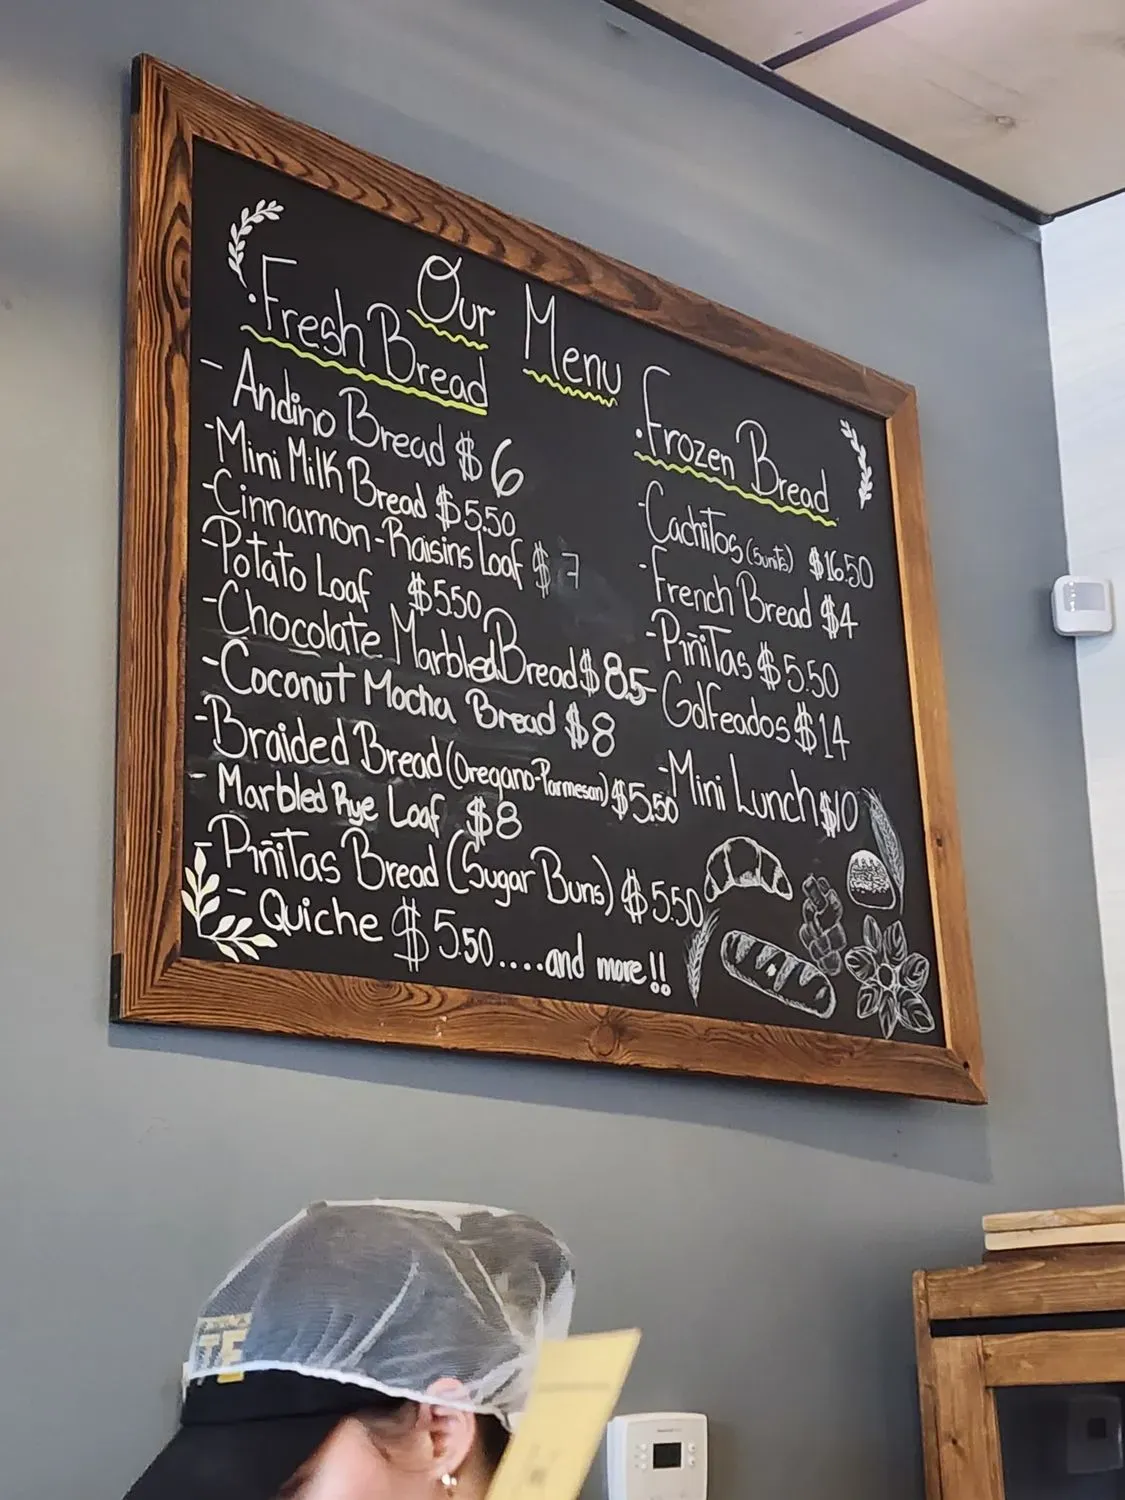 Our Menu
.Fresh Bread
- Andino Bread $6
-Mini Milk Bread $5.50
-Cinnamon-Raisins Loaf $7
-Potato Loaf $5.50
-Chocolate Marbled Bread $8.5
-Coconut Mocha Bread $8
-Braided Bread (Oregano-Parmesan) $5.50
- Marbled Rye Loaf $8
-Piñitas Bread (Sugar Buns) $5.50
- Quiche $5.50....and more!!
.Frozen Bread
-Cachitos (5units) $16.50
-French Bread $4
-Piñitas $5.50
-Golfeados $14
-Mini Lunch $10